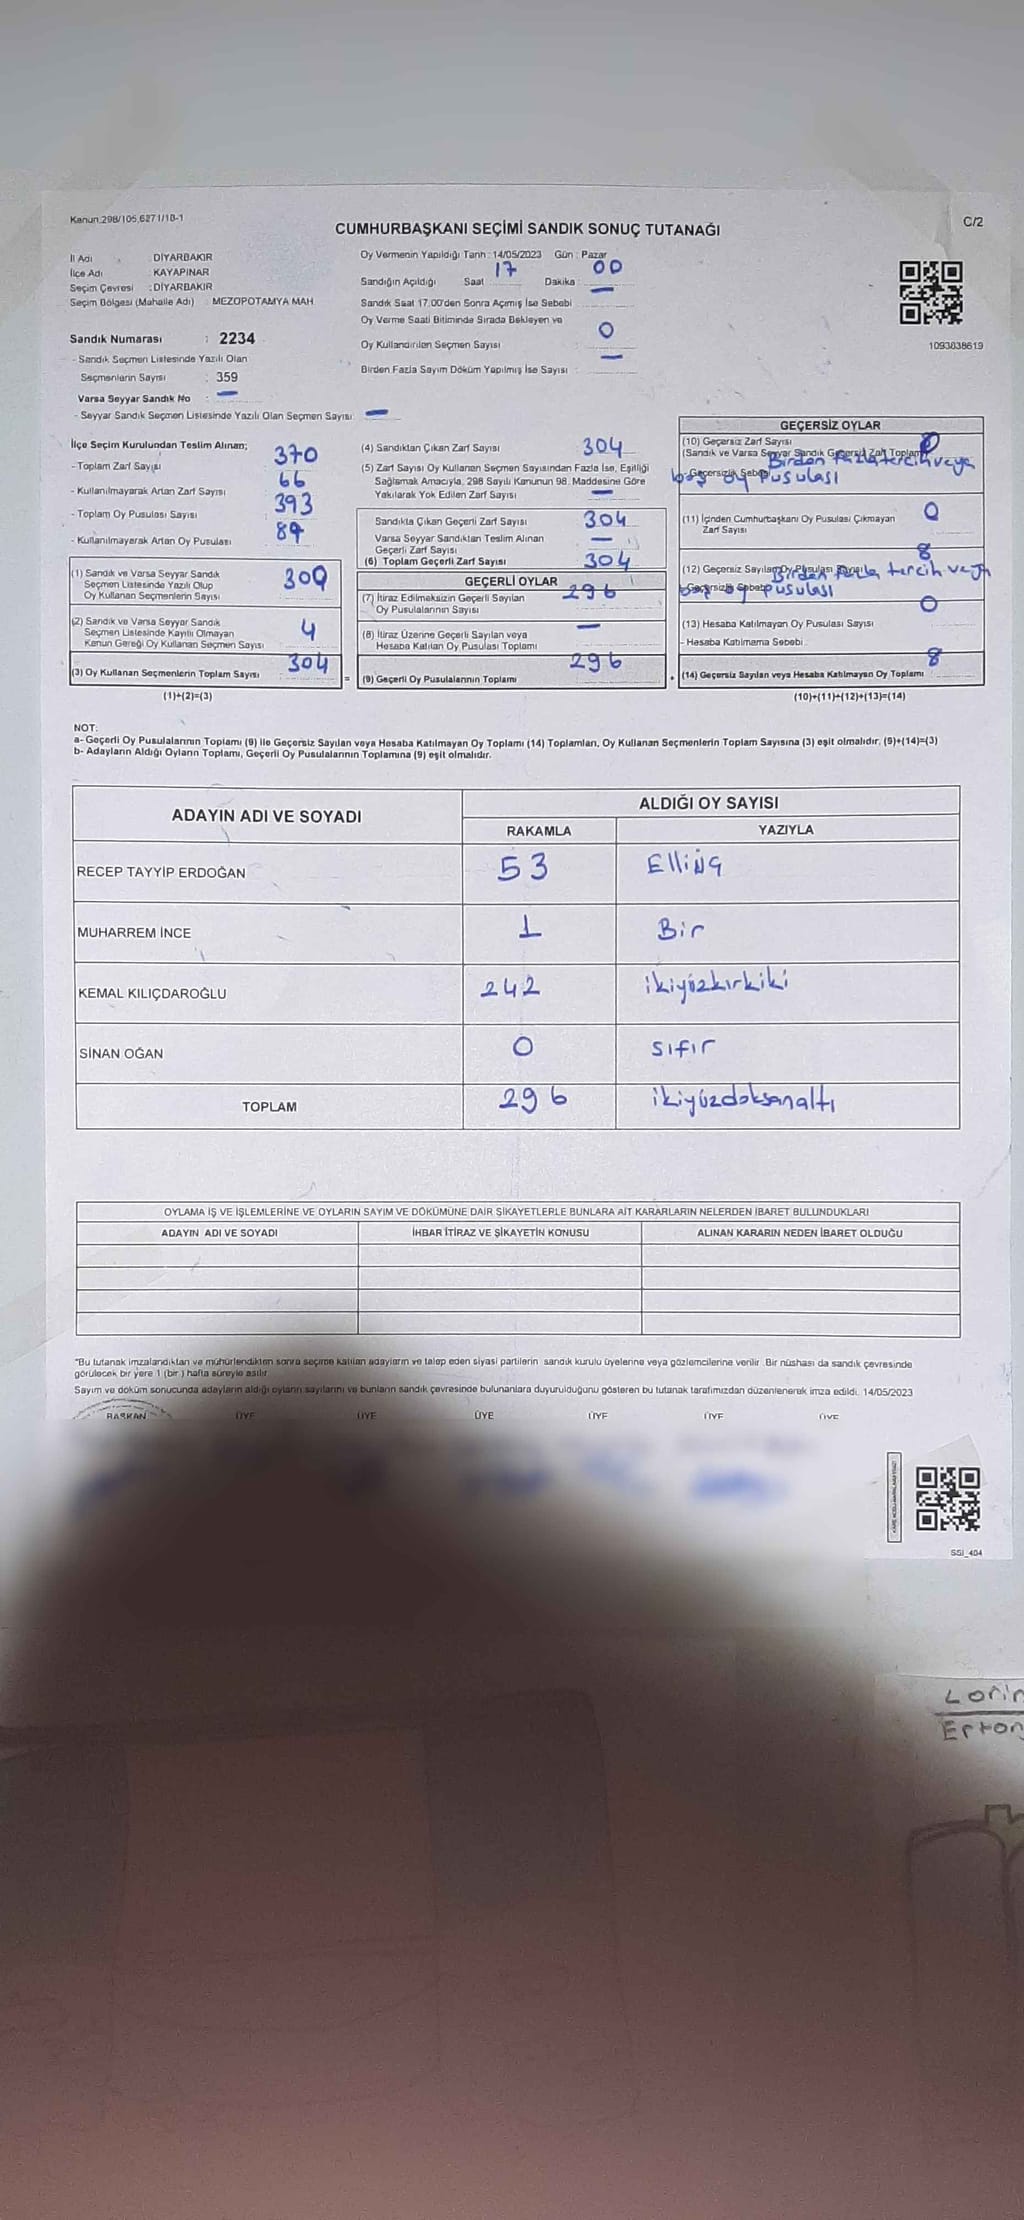 Kanun 298/105,6271/18-1
CUMHURBAŞKANI SEÇİMİ SANDIK SONUÇ TUTANAĞI
C/2
İl Adı : DİYARBAKIR
İlçe Adı : KAYAPINAR
Seçim Çevresi : DİYARBAKIR
Seçim Bölgesi (Mahalle Adı) : MEZOPOTAMYA MAH
Sandık Numarası : 2234
- Sandık Seçmen Listesinde Yazılı Olan
Seçmenlerin Sayısı : 359
Varsa Seyyar Sandık No : —
- Seyyar Sandık Seçmen Listesinde Yazılı Olan Seçmen Sayısı: —
Oy Vermenin Yapıldığı Tarih : 14/05/2023 Gün : Pazar
Sandığın Açıldığı Saat 17 Dakika : 00
Sandık Saat 17.00'den Sonra Açılmış İse Sebebi : —
Oy Verme Saati Bitiminde Sırada Bekleyen ve
Oy Kullandırılan Seçmen Sayısı : 0
Birden Fazla Sayım Döküm Yapılmış İse Sayısı : —
1093838619
İlçe Seçim Kurulundan Teslim Alınan;
- Toplam Zarf Sayısı 370
- Kullanılmayarak Artan Zarf Sayısı 66
- Toplam Oy Pusulası Sayısı 393
- Kullanılmayarak Artan Oy Pusulası
(1) Sandık ve Varsa Seyyar Sandık
Seçmen Listesinde Yazılı Olup
Oy Kullanan Seçmenlerin Sayısı
(2) Sandık ve Varsa Seyyar Sandık
Seçmen Listesinde Kayıtlı Olmayan
Kanun Gereği Oy Kullanan Seçmen Sayısı 4
(3) Oy Kullanan Seçmenlerin Toplam Sayısı 304
(1)+(2)=(3)
(4) Sandıktan Çıkan Zarf Sayısı 304
(5) Zarf Sayısı Oy Kullanan Seçmen Sayısından Fazla İse, Eşitliği
Sağlamak Amacıyla, 298 Sayılı Kanunun 98. Maddesine Göre
Yakılarak Yok Edilen Zarf Sayısı —
Sandıkta Çıkan Geçerli Zarf Sayısı 304
Varsa Seyyar Sandıktan Teslim Alınan
Geçerli Zarf Sayısı —
(6) Toplam Geçerli Zarf Sayısı 304
GEÇERLİ OYLAR
(7) İtiraz Edilmeksizin Geçerli Sayılan
Oy Pusulalarının Sayısı 296
(8) İtiraz Üzerine Geçerli Sayılan veya
Hesaba Katılan Oy Pusulası Toplamı —
= (9) Geçerli Oy Pusulalarının Toplamı 296
GEÇERSİZ OYLAR
(10) Geçersiz Zarf Sayısı
(Sandık ve Varsa Seyyar Sandık Geçersiz Zarf Toplamı)
- Geçersizlik Sebebi Birden fazla tercih veya
boş oy pusulası
(11) İçinden Cumhurbaşkanı Oy Pusulası Çıkmayan
Zarf Sayısı 0
(12) Geçersiz Sayılan Oy Pusulası Sayısı 8
- Geçersizlik Sebebi Birden fazla tercih veya
boş oy pusulası
(13) Hesaba Katılmayan Oy Pusulası Sayısı 0
- Hesaba Katılmama Sebebi :
(14) Geçersiz Sayılan veya Hesaba Katılmayan Oy Toplamı 8
(10)+(11)+(12)+(13)=(14)
NOT:
a- Geçerli Oy Pusulalarının Toplamı (9) ile Geçersiz Sayılan veya Hesaba Katılmayan Oy Toplamı (14) Toplamları, Oy Kullanan Seçmenlerin Toplam Sayısına (3) eşit olmalıdır. (9)+(14)=(3)
b- Adayların Aldığı Oyların Toplamı, Geçerli Oy Pusulalarının Toplamına (9) eşit olmalıdır.
ADAYIN ADI VE SOYADI ALDIĞI OY SAYISI
RAKAMLA YAZIYLA
RECEP TAYYİP ERDOĞAN 53 Elliüç
MUHARREM İNCE 1 Bir
KEMAL KILIÇDAROĞLU 242 ikiyüzkırkiki
SİNAN OĞAN 0 sıfır
TOPLAM 296 ikiyüzdoksanaltı
OYLAMA İŞ VE İŞLEMLERİNE VE OYLARIN SAYIM VE DÖKÜMÜNE DAİR ŞİKAYETLERLE BUNLARA AİT KARARLARIN NELERDEN İBARET BULUNDUKLARI
ADAYIN ADI VE SOYADI İHBAR İTİRAZ VE ŞİKAYETİN KONUSU ALINAN KARARIN NEDEN İBARET OLDUĞU
"Bu tutanak imzalandıktan ve mühürlendikten sonra seçime katılan adayların ve talep eden siyasi partilerin sandık kurulu üyelerine veya gözlemcilerine verilir. Bir nüshası da sandık çevresinde
görülecek bir yere 1 (bir) hafta süreyle asılır.
Sayım ve döküm sonucunda adayların aldığı oyların sayılarını ve bunların sandık çevresinde bulunanlara duyurulduğunu gösteren bu tutanak tarafımızdan düzenlenerek imza edildi. 14/05/2023
BAŞKAN ÜYE ÜYE ÜYE ÜYE ÜYE ÜYE
SSI_404